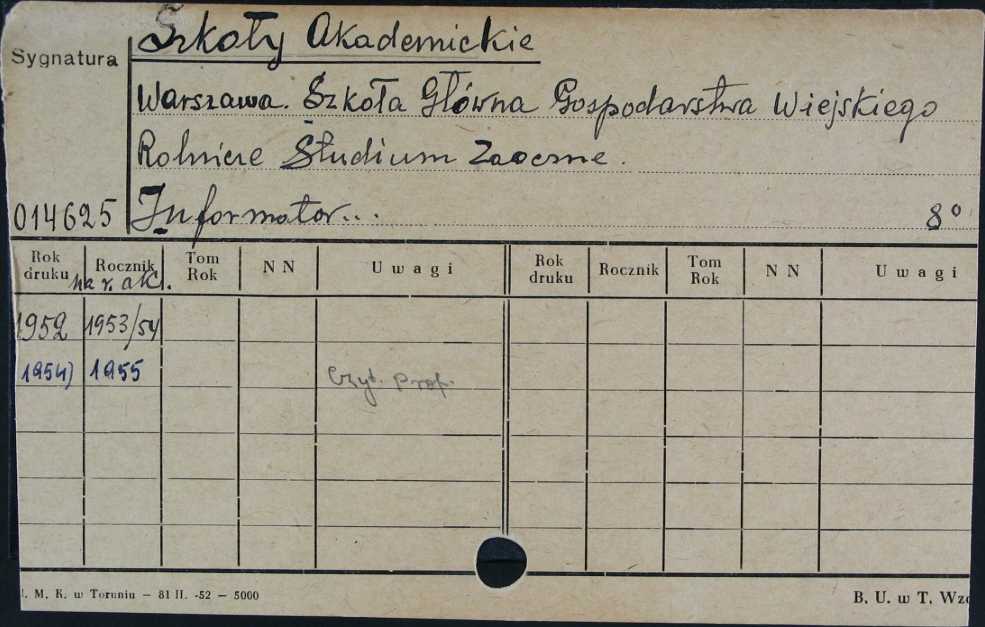 Szkoły Akademickie
Sygnatura
Warszawa. Szkoła Główna Gospodarstwa Wiejskiego
Rolnicze Studium Zaoczne.
014625 Informator... 8°
Rok druku Rocznik Tom Rok NN Uwagi Rok druku Rocznik Tom Rok NN Uwagi
na r. ak.
1952 1953/54
1954) 1955 Czyt. Prof.
. M. K. w Toruniu — 81 II. -52 — 5000 B. U. w T. Wzo